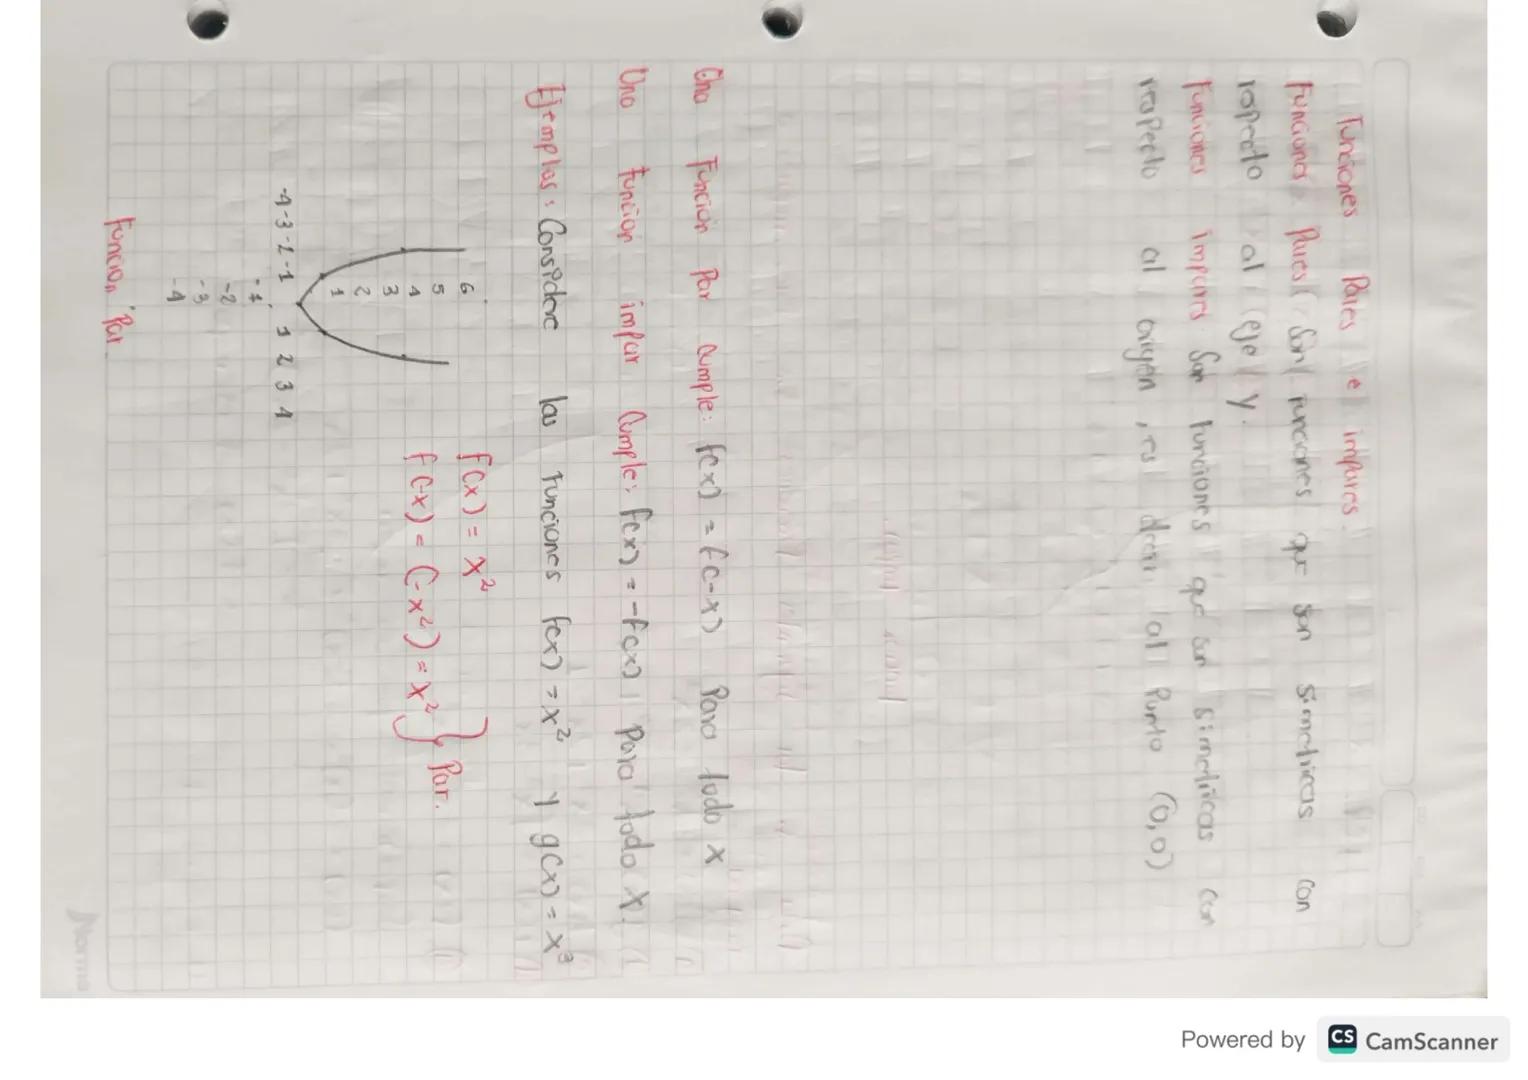 Funciones Pares e impares.
Funciones Pares: Son funciones que son simetricas con
respecto al eje Y.
Funciones impares son funciones que son simetricas con
respecto al origen, es decir al Punto (0,0)
Una Función Par cumple: f(x) = f(-x) Para todo x
Una función impar Cumple: f(x) = -f(x) Para todo x.
Ejemplos: Considere las funciones f(x) = x² y g(x) = x³
f(x) = x²
f(-x) = (-x²) = x² } Par.
6
5
4
3
2
1
-4 -3 -2 -1 1 2 3 4
-1
-2
-3
-4
Función Par
Norma
Powered by CS CamScanner